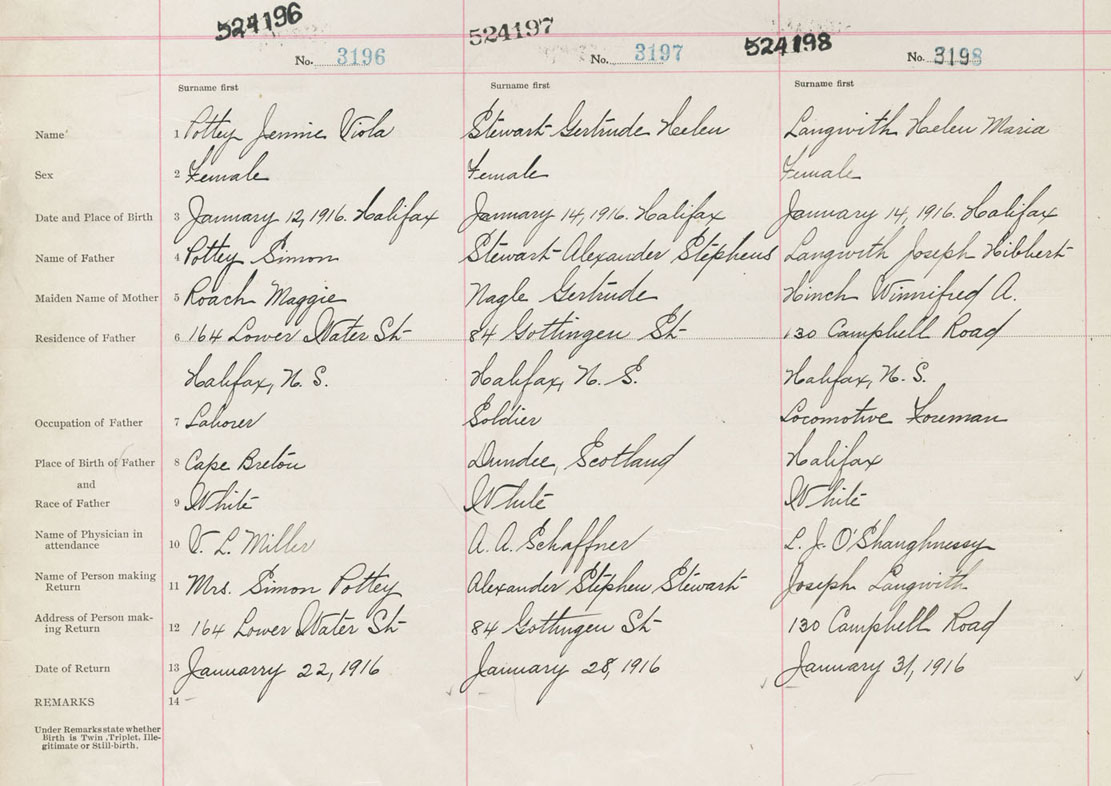 524196 524197 524198
No. 3196 No. 3197 No. 3198
Surname first Surname first Surname first
Name 1 Pottey Jennie Viola Stewart Gertrude Helen Langwith Helen Maria
Sex 2 Female Female Female
Date and Place of Birth 3 January 12, 1916. Halifax January 14, 1916. Halifax January 14, 1916. Halifax
Name of Father 4 Pottey Simon Stewart Alexander Stephens Langwith Joseph Hibbert
Maiden Name of Mother 5 Roach Maggie Nagle Gertrude Hinch Winnifred A.
Residence of Father 6 164 Lower Water St 84 Gottingen St 130 Campbell Road
Halifax, N. S. Halifax, N. S. Halifax, N. S.
Occupation of Father 7 Laborer Soldier Locomotive Foreman
Place of Birth of Father 8 Cape Breton Dundee, Scotland Halifax
and
Race of Father 9 White White White
Name of Physician in
attendance 10 V. L. Miller A. A. Schaffner L. J. O'Shaughnessy
Name of Person making
Return 11 Mrs. Simon Pottey Alexander Stephen Stewart Joseph Langwith
Address of Person mak-
ing Return 12 164 Lower Water St 84 Gottingen St 130 Campbell Road
Date of Return 13 Januarry 22, 1916 January 28, 1916 January 31, 1916
REMARKS 14 -
Under Remarks state whether
Birth is Twin, Triplet, Ille-
gitimate or Still-birth.